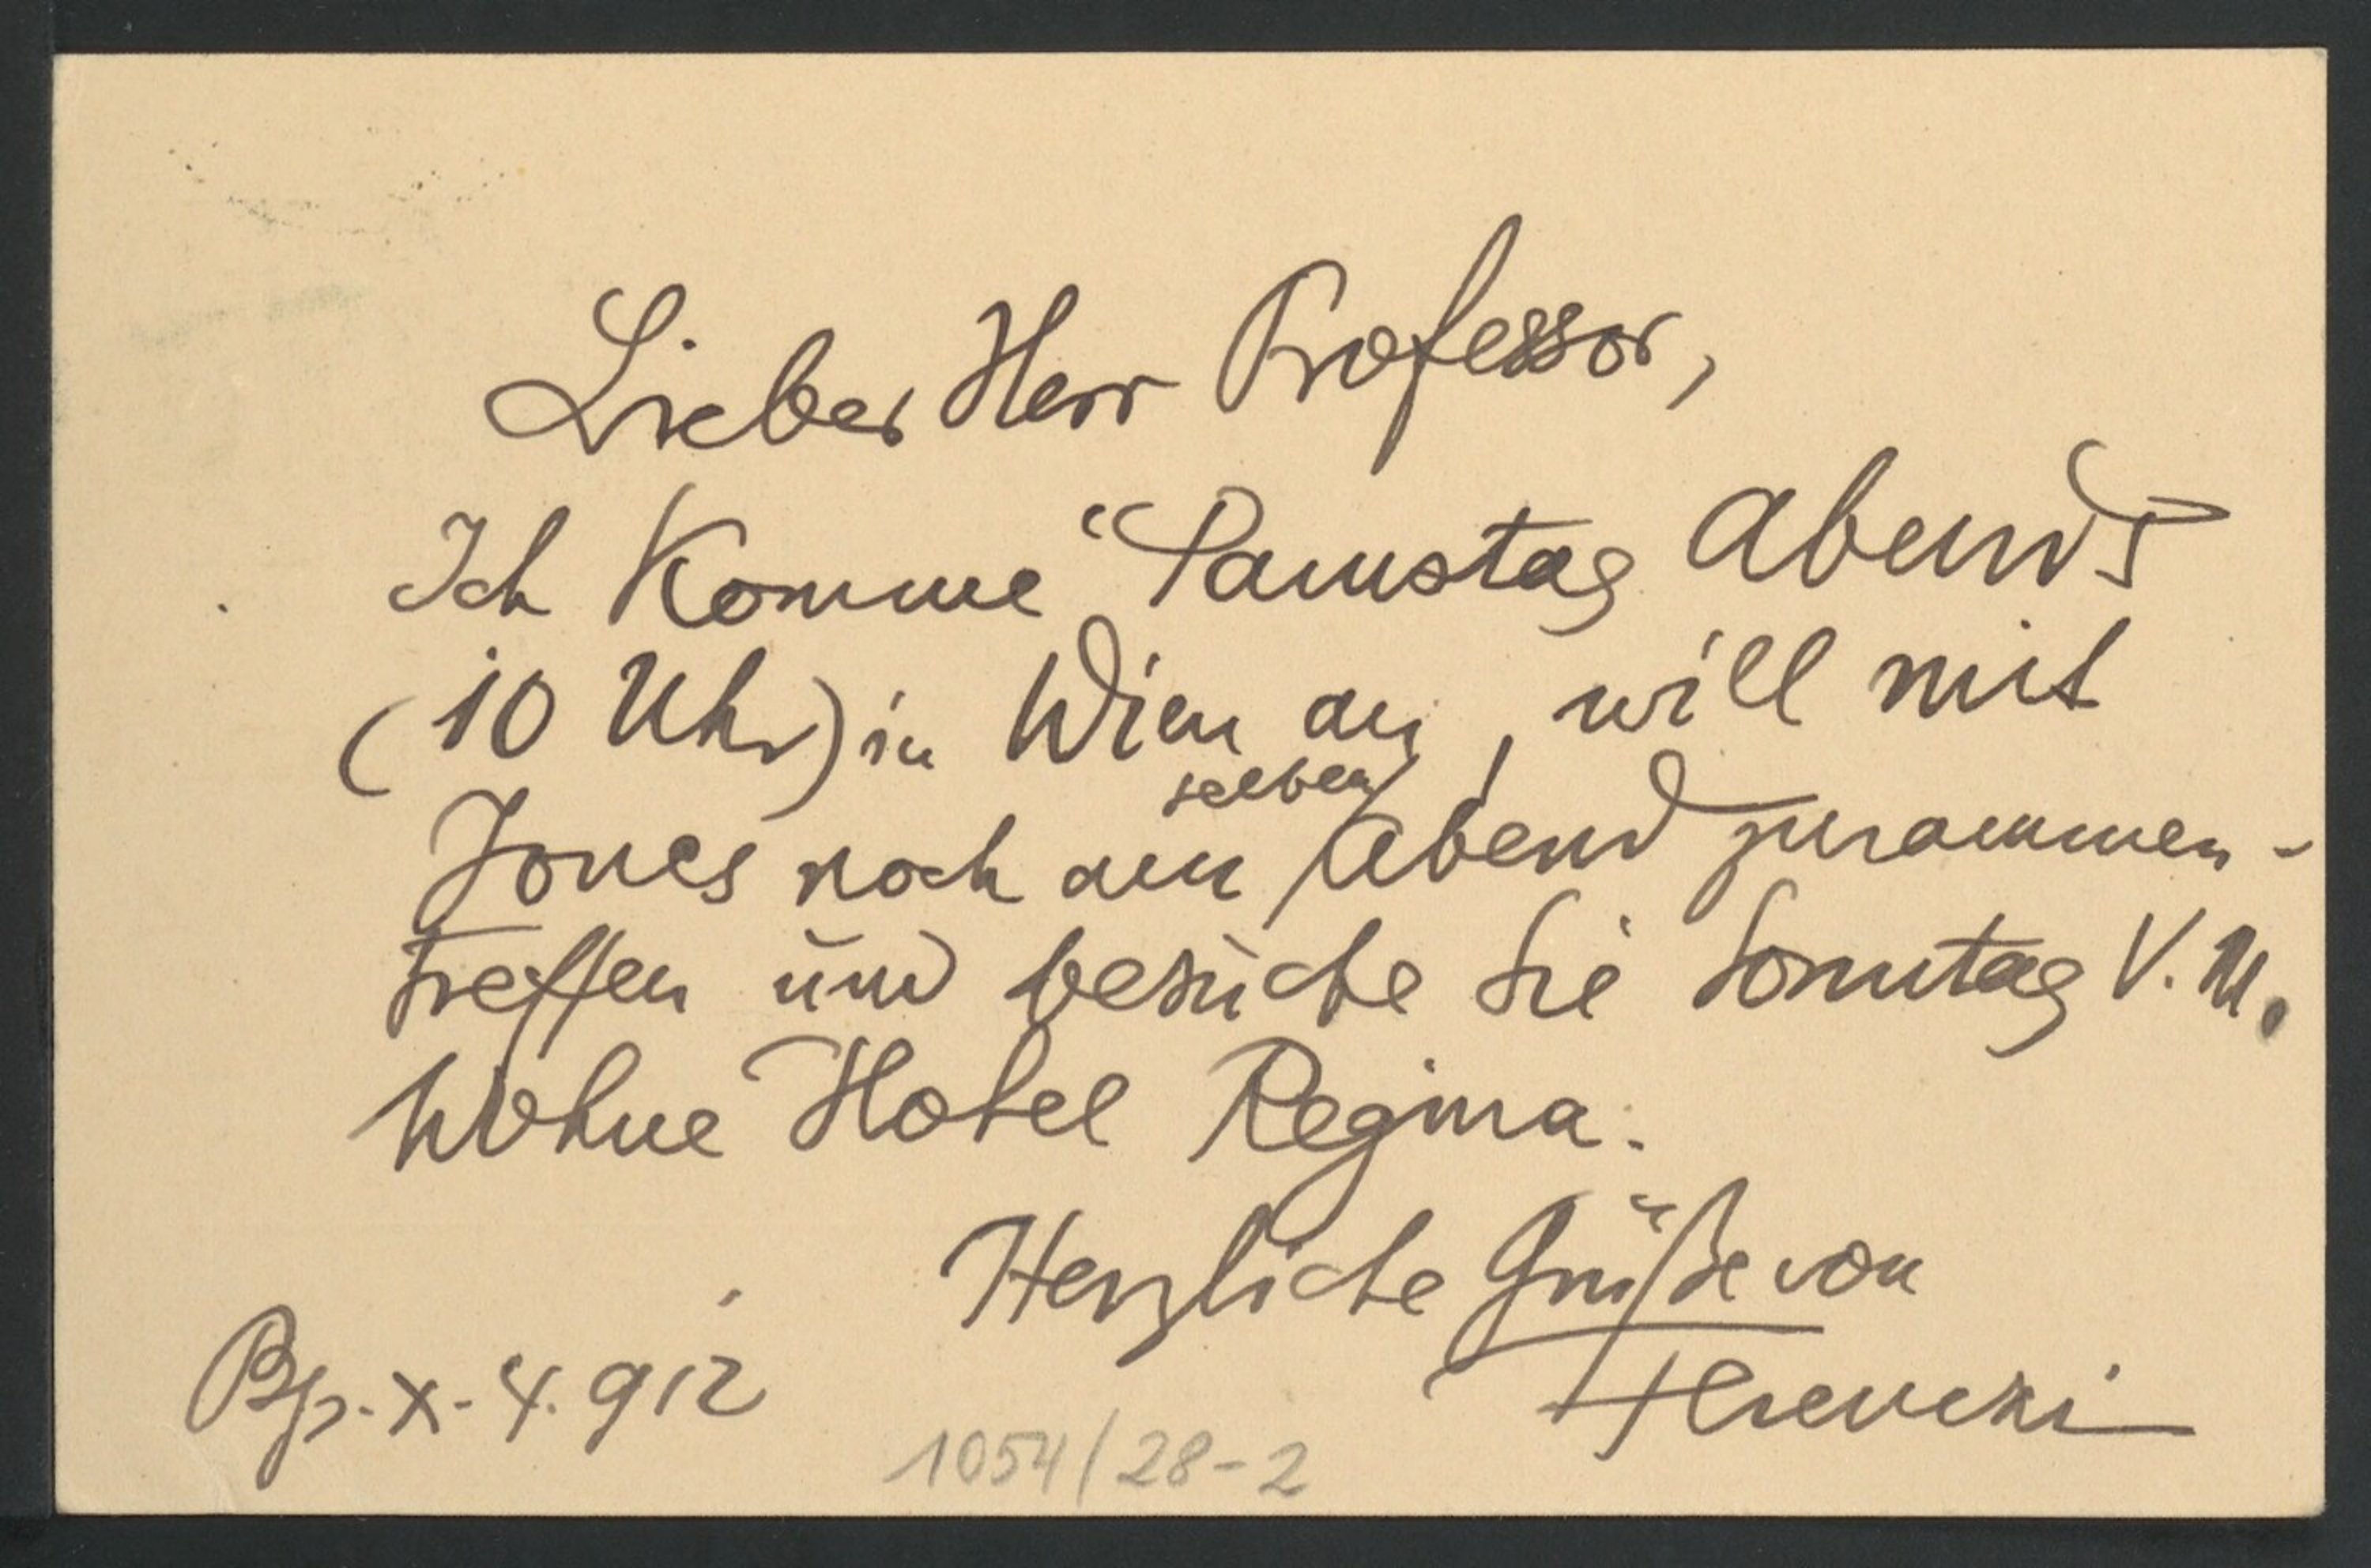 Lieber Herr Professor,
Ich komme Samstag Abends
(10 Uhr) in Wien an, will mit
Jones noch am selben Abend zusammen-
treffen und besuche Sie Sonntag V. M.
Wohne Hotel Regina.
Herzliche Grüße von
Ferenczi
Bp. X. 4. 912
1054/28-2